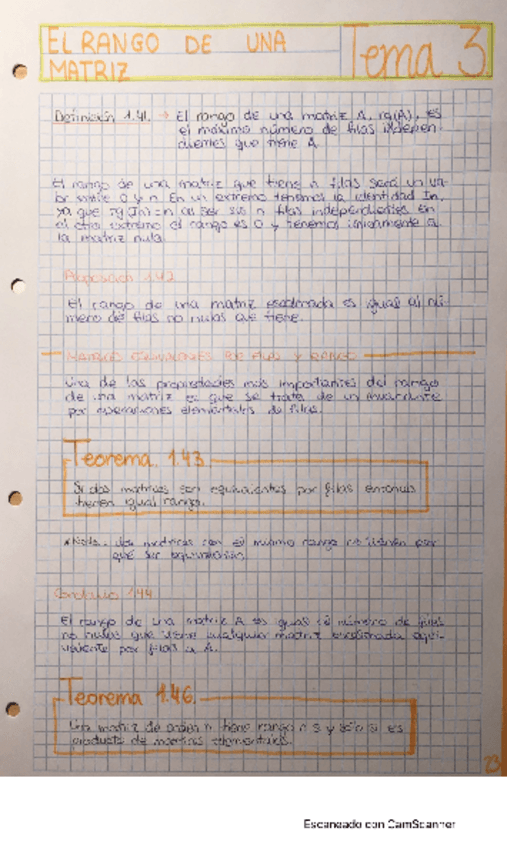 EL RANGO DE UNA
MATRIZ
Tema 3
Definición 1.41. → El rango de una matriz A, rg(A), es
el máximo número de filas indepen-
dientes que tiene A.
El rango de una matriz que tiene n filas será un va-
lor entre 0 y n. En un extremo tenemos la identidad In,
ya que rg(In)=n al ser sus n filas independientes. En
el otro extremo el rango es 0 y tenemos únicamente a
la matriz nula.
Proposición 1.42
El rango de una matriz escalonada es igual al nú-
mero de filas no nulas que tiene.
MATRICES EQUIVALENTES POR FILAS Y RANGO
Una de las propiedades más importantes del rango
de una matriz es que se trata de un invariante
por operaciones elementales de filas.
Teorema 1.43
Si dos matrices son equivalentes por filas entonces
tienen igual rango.
*Nota: dos matrices con el mismo rango no tienen por
qué ser equivalentes.
Corolario 1.44
El rango de una matriz A es igual al número de filas
no nulas que tiene cualquier matriz escalonada equi-
valente por filas a A.
Teorema 1.46.
Una matriz de orden n tiene rango n si y sólo si es
producto de matrices elementales.
23
Escaneado con CamScanner